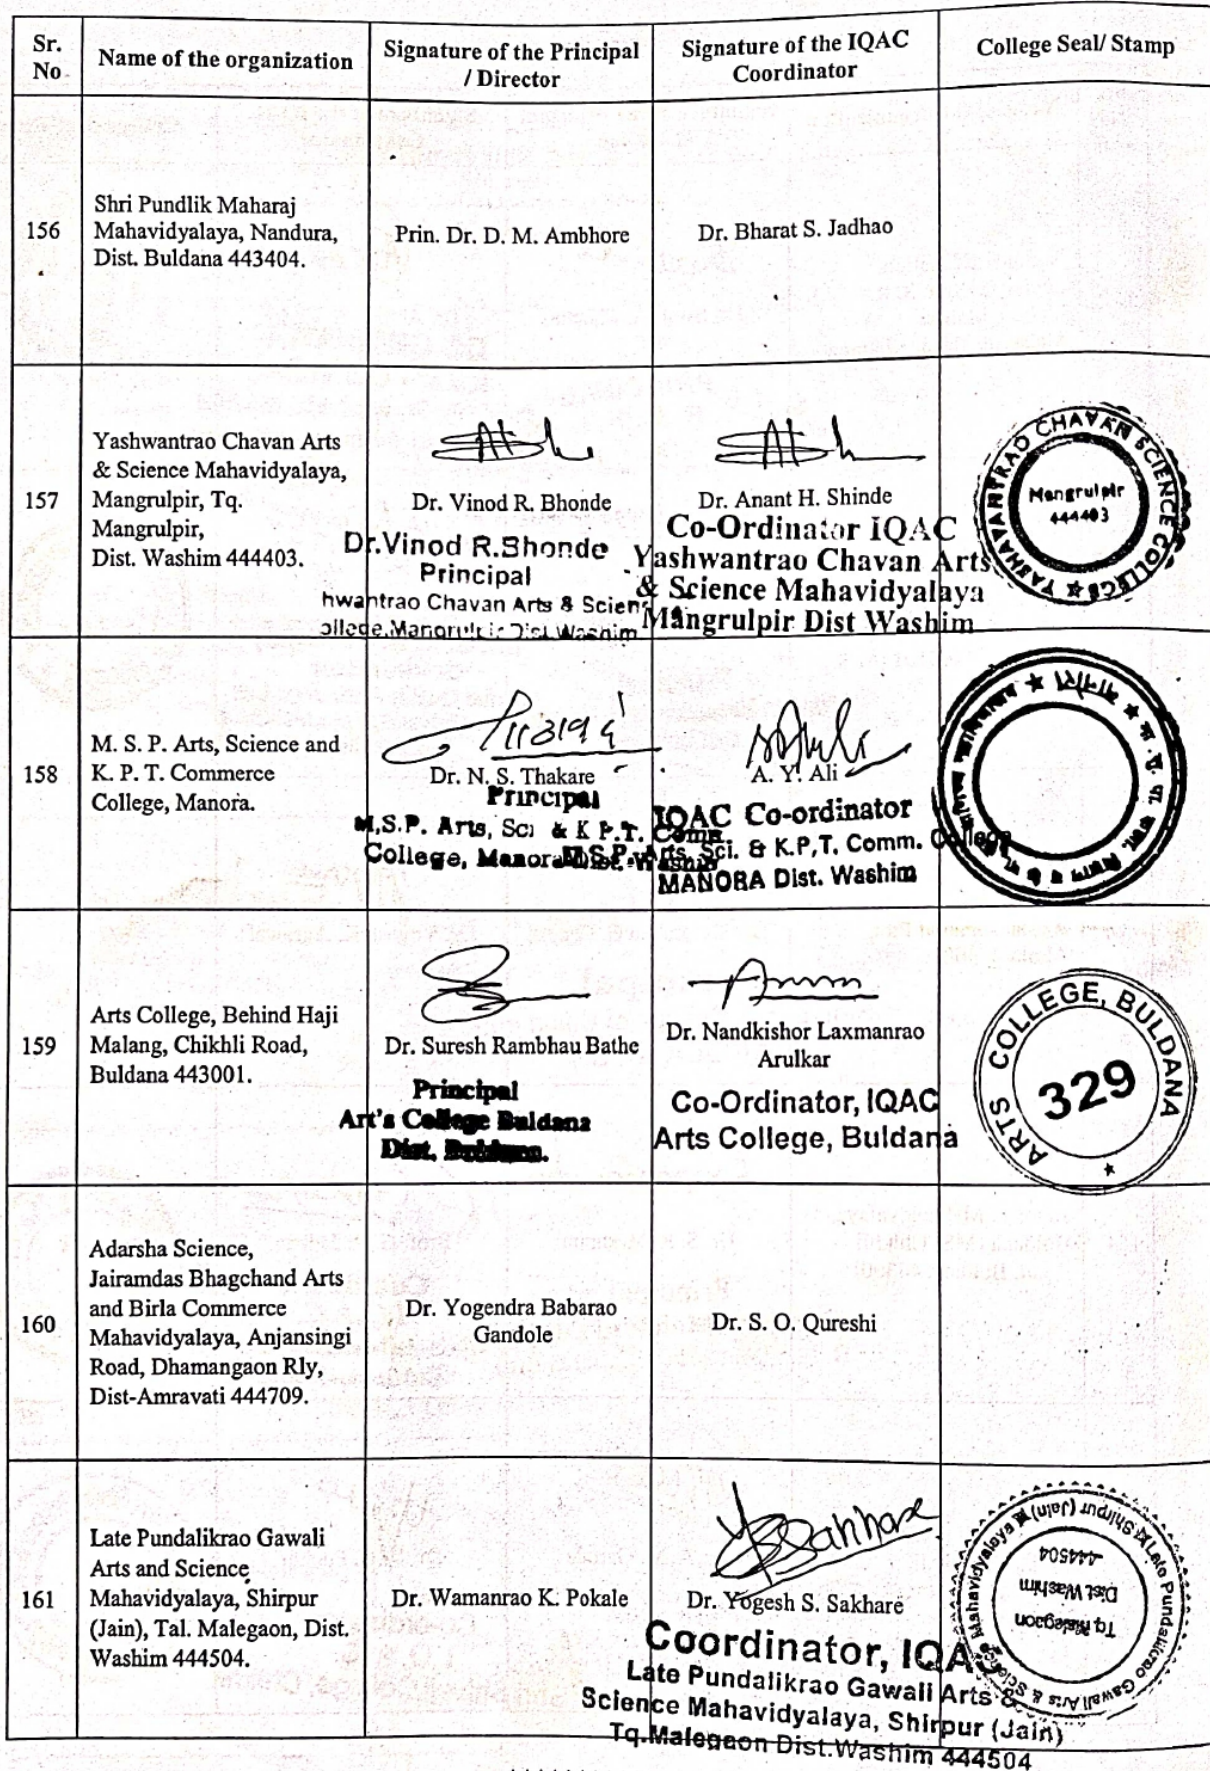 Sr. No
Name of the organization
Signature of the Principal / Director
Signature of the IQAC Coordinator
College Seal/ Stamp
156
Shri Pundlik Maharaj
Mahavidyalaya, Nandura,
Dist. Buldana 443404.
Prin. Dr. D. M. Ambhore
Dr. Bharat S. Jadhao
157
Yashwantrao Chavan Arts
& Science Mahavidyalaya,
Mangrulpir, Tq.
Mangrulpir,
Dist. Washim 444403.
Dr. Vinod R. Bhonde
Dr.Vinod R.Bhonde
Principal
hwantrao Chavan Arts & Scien
Dr. Anant H. Shinde
Co-Ordinator IQAC
Yashwantrao Chavan Arts
& Science Mahavidyalaya
Mangrulpir Dist Washim
YASHAVANTRAO CHAVAN SCIENCE COLLEGE
Mangrulpir
444403
158
M. S. P. Arts, Science and
K. P. T. Commerce
College, Manora.
Dr. N. S. Thakare
Principal
M,S.P. Arts, Sci & K P.T. Comm
College, Manora Dist. Washim
A. Y. Ali
IQAC Co-ordinator
M.S.P. Arts, Sci. & K.P,T. Comm. College
MANORA Dist. Washim
159
Arts College, Behind Haji
Malang, Chikhli Road,
Buldana 443001.
Dr. Suresh Rambhau Bathe
Principal
Art's College Buldana
Dist. Buldana.
Dr. Nandkishor Laxmanrao
Arulkar
Co-Ordinator, IQAC
Arts College, Buldana
ARTS COLLEGE, BULDANA
329
160
Adarsha Science,
Jairamdas Bhagchand Arts
and Birla Commerce
Mahavidyalaya, Anjansingi
Road, Dhamangaon Rly,
Dist-Amravati 444709.
Dr. Yogendra Babarao
Gandole
Dr. S. O. Qureshi
161
Late Pundalikrao Gawali
Arts and Science
Mahavidyalaya, Shirpur
(Jain), Tal. Malegaon, Dist.
Washim 444504.
Dr. Wamanrao K. Pokale
Sakhare
Dr. Yogesh S. Sakhare
Coordinator, IQAC
Late Pundalikrao Gawali Arts &
Science Mahavidyalaya, Shirpur (Jain)
Tq.Malegaon Dist.Washim 444504
Late Pundalikrao Gawali Arts & Science Mahavidyalaya Shirpur (Jain)
Tq Malegaon
Dist Washim
444504